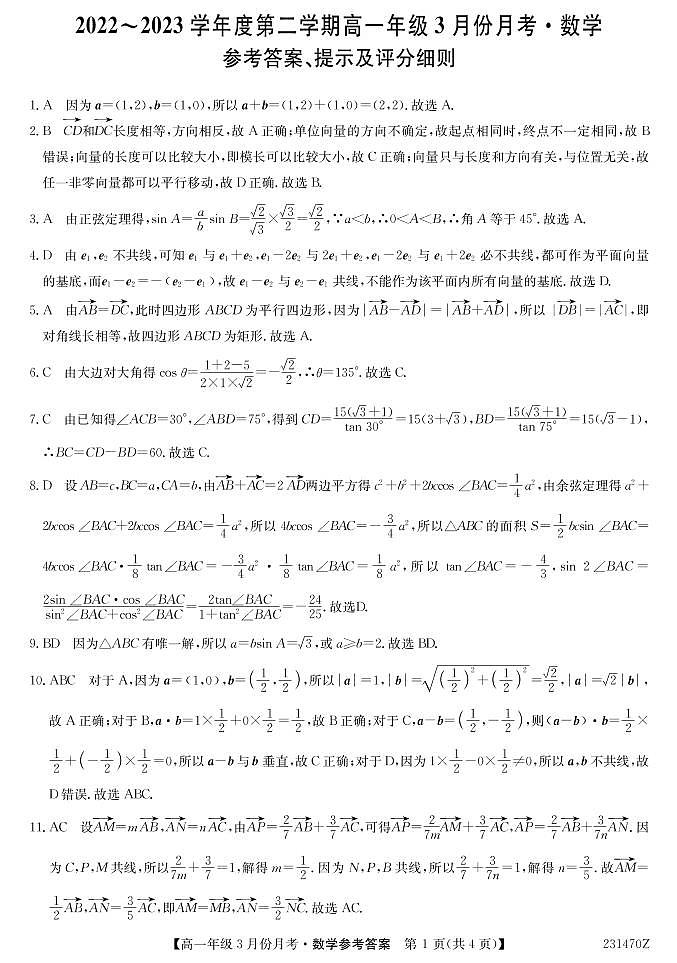 2022～2023学年度第二学期高一年级3月份月考·数学
参考答案、提示及评分细则
1. A　因为a=(1,2),b=(1,0),所以a+b=(1,2)+(1,0)=(2,2).故选A.
2. B　$\overrightarrow{CD}$和$\overrightarrow{DC}$长度相等,方向相反,故A正确;单位向量的方向不确定,故起点相同时,终点不一定相同,故B
错误;向量的长度可以比较大小,即模长可以比较大小,故C正确;向量只与长度和方向有关,与位置无关,故
任一非零向量都可以平行移动,故D正确.故选B.
3. A　由正弦定理得,sin A=$\frac{a}{b}$sin B=$\frac{\sqrt{2}}{\sqrt{3}}×\frac{\sqrt{3}}{2}=\frac{\sqrt{2}}{2}$,∵a<b,∴0<A<B,∴角A等于45°.故选A.
4. D　由e₁,e₂不共线,可知e₁与e₁+e₂,e₁-2e₂与2e₁+e₂,e₁-2e₂与e₁+2e₂必不共线,都可作为平面向量
的基底,而e₁-e₂=-(e₂-e₁),故e₁-e₂与e₂-e₁共线,不能作为该平面内所有向量的基底.故选D.
5. A　由$\overrightarrow{AB}=\overrightarrow{DC}$,此时四边形ABCD为平行四边形,因为|$\overrightarrow{AB}-\overrightarrow{AD}$|=|$\overrightarrow{AB}+\overrightarrow{AD}$|,所以|$\overrightarrow{DB}$|=|$\overrightarrow{AC}$|,即
对角线长相等,故四边形ABCD为矩形.故选A.
6. C　由大边对大角得cos θ=$\frac{1+2-5}{2×1×\sqrt{2}}=-\frac{\sqrt{2}}{2}$,∴θ=135°.故选C.
7. C　由已知得∠ACB=30°,∠ABD=75°,得到CD=$\frac{15(\sqrt{3}+1)}{\tan 30°}$=15(3+$\sqrt{3}$),BD=$\frac{15(\sqrt{3}+1)}{\tan 75°}$=15($\sqrt{3}$-1),
∴BC=CD-BD=60.故选C.
8. D　设AB=c,BC=a,CA=b,由$\overrightarrow{AB}+\overrightarrow{AC}=2\overrightarrow{AD}$两边平方得c²+b²+2bccos∠BAC=$\frac{1}{4}$a²,由余弦定理得a²+
2bccos∠BAC+2bccos∠BAC=$\frac{1}{4}$a²,所以4bccos∠BAC=-$\frac{3}{4}$a²,所以△ABC的面积S=$\frac{1}{2}$bcsin∠BAC=
4bccos∠BAC·$\frac{1}{8}$tan∠BAC=-$\frac{3}{4}$a²·$\frac{1}{8}$tan∠BAC=$\frac{1}{8}$a²,所以tan∠BAC=-$\frac{4}{3}$,sin 2∠BAC=
$\frac{2\sin∠BAC·\cos∠BAC}{\sin^2∠BAC+\cos^2∠BAC}=\frac{2\tan∠BAC}{1+\tan^2∠BAC}=-\frac{24}{25}$.故选D.
9. BD　因为△ABC有唯一解,所以a=bsin A=$\sqrt{3}$,或a≥b=2.故选BD.
10. ABC　对于A,因为a=(1,0),b=($\frac{1}{2}$,$\frac{1}{2}$),所以|a|=1,|b|=$\sqrt{(\frac{1}{2})^2+(\frac{1}{2})^2}=\frac{\sqrt{2}}{2}$,|a|=$\sqrt{2}$|b|,
故A正确;对于B,a·b=1×$\frac{1}{2}$+0×$\frac{1}{2}$=$\frac{1}{2}$,故B正确;对于C,a-b=($\frac{1}{2}$,-$\frac{1}{2}$),则(a-b)·b=$\frac{1}{2}$×
$\frac{1}{2}$+(-$\frac{1}{2}$)×$\frac{1}{2}$=0,所以a-b与b垂直,故C正确;对于D,因为1×$\frac{1}{2}$-0×$\frac{1}{2}$≠0,所以a,b不共线,故
D错误.故选ABC.
11. AC　设$\overrightarrow{AM}=m\overrightarrow{AB}$,$\overrightarrow{AN}=n\overrightarrow{AC}$,由$\overrightarrow{AP}=\frac{2}{7}\overrightarrow{AB}+\frac{3}{7}\overrightarrow{AC}$,可得$\overrightarrow{AP}=\frac{2}{7m}\overrightarrow{AM}+\frac{3}{7}\overrightarrow{AC}$,$\overrightarrow{AP}=\frac{2}{7}\overrightarrow{AB}+\frac{3}{7n}\overrightarrow{AN}$.因
为C,P,M共线,所以$\frac{2}{7m}+\frac{3}{7}$=1,解得m=$\frac{1}{2}$.因为N,P,B共线,所以$\frac{2}{7}+\frac{3}{7n}$=1,解得n=$\frac{3}{5}$.故$\overrightarrow{AM}$=
$\frac{1}{2}\overrightarrow{AB}$,$\overrightarrow{AN}=\frac{3}{5}\overrightarrow{AC}$,即$\overrightarrow{AM}=\overrightarrow{MB}$,$\overrightarrow{AN}=\frac{3}{2}\overrightarrow{NC}$.故选AC.
【高一年级3月份月考·数学参考答案　第1页(共4页)】　231470Z